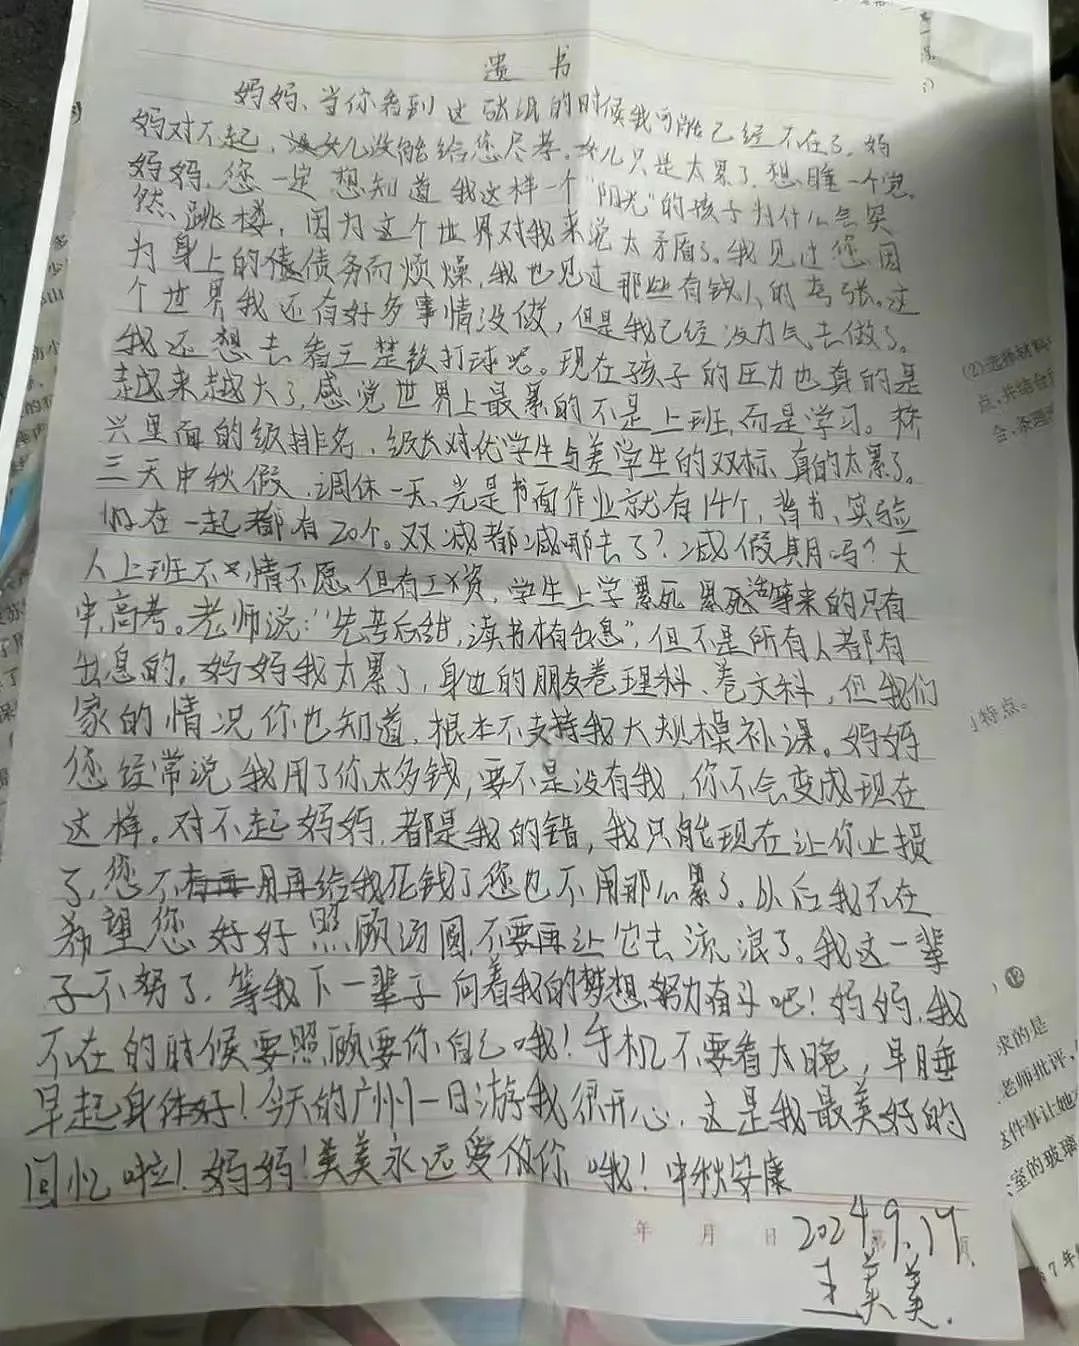 遗书
妈妈、当你看到这张纸的时候我可能已经不在了，妈
妈对不起，女儿没能给您尽孝。女儿只是太累了，想睡一个觉。
妈妈，您一定想知道我这样一个“阳光”的孩子为什么会突
然跳楼，因为这个世界对我来说太矛盾了。我见过您因
为身上的债务而烦燥，我也见过那些有钱人的嚣张。这
个世界我还有好多事情没做，但是我已经没力气去做了。
我还想去看王楚钦打球呢。现在孩子的压力也真的是
越来越大了，感觉世界上最累的不是上班，而是学习。
兴里面的级排名，级长对优学生与差学生的双标，真的太累了。
三天中秋假，调休一天，光是书面作业就有14个，背书、实验
加在一起都有20个。双减都减哪去了？减假期吗？大
人上班不情不愿，但有工资，学生上学累死累死等来的只有
中，高考。老师说：“先苦后甜，读书才有出息”，但不是所有人都有
出息的。妈妈我太累了，身边的朋友卷理科、卷文科，但我们
家的情况你也知道，根本不支持我大规模补课。妈妈
您经常说我用了你太多钱，要不是没有我，你不会变成现在
这样。对不起妈妈，都是我的错，我只能现在让你止损
了，您不用再给我花钱了您也不用那么累了。以后我不在
希望您好好照顾汤圆，不要再让它去流浪了。我这一辈
子不努了，等我下一辈子向着我的梦想努力奋斗吧！妈妈，我
不在的时候要照顾要你自己哦！手机不要看太晚，早睡
早起身体好！今天的广州一日游我很开心，这是我最美好的
回忆啦！妈妈！美美永远爱你哦！中秋安康
年 月 日 第 页
2024.9.17
王美美.
(2)选择材料
点，并结合
会、条理
特点。
求的是
老师批评，
这件事让她
室的玻璃